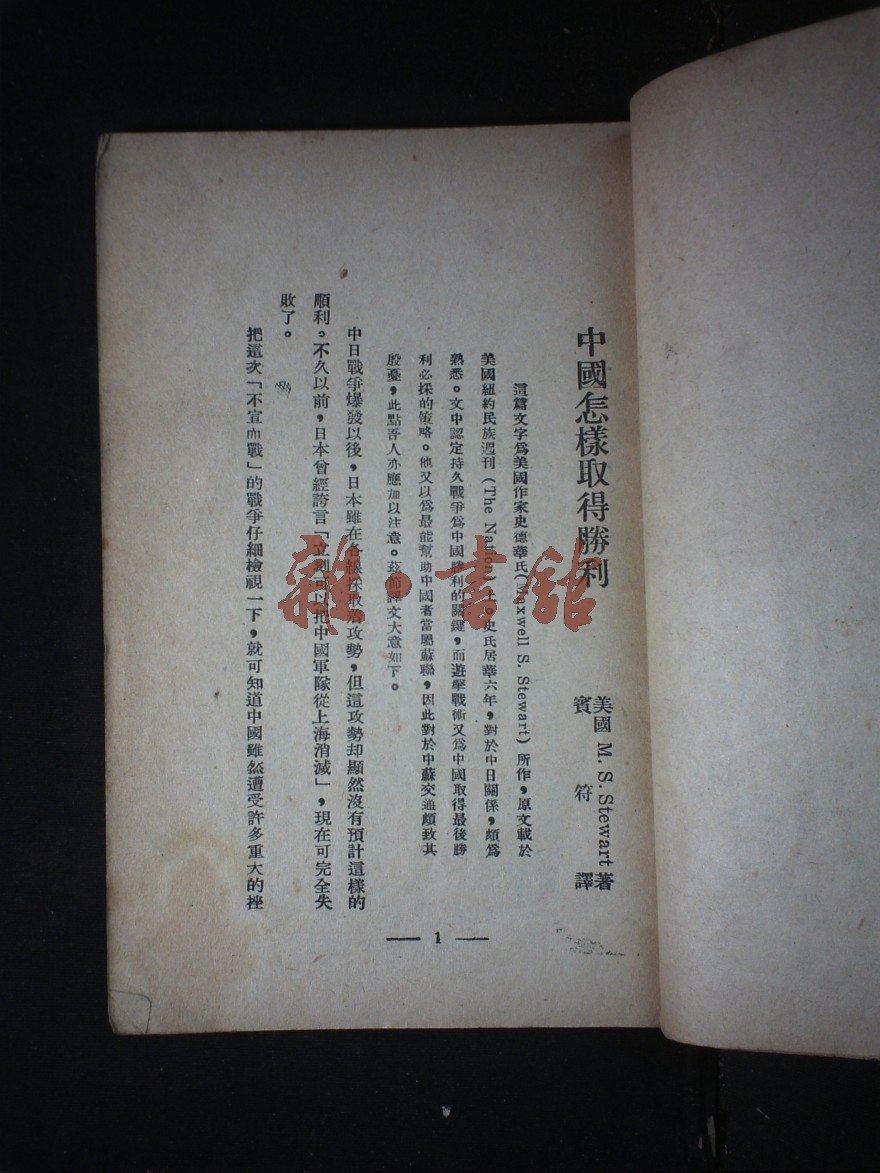 中國怎樣取得勝利
美國 M. S. Stewart著
賓符譯
這篇文字爲美國作家史德華氏(Maxwell S. Stewart)所作，原文載於
美國紐約民族週刊(The Nation)上。史氏居華六年，對於中日關係，頗爲
熟悉。文中認定持久戰爭爲中國勝利的關鍵，而遊擊戰術又爲中國取得最後勝
利必採的策略。他又以爲最能幫助中國者當屬蘇聯，因此對於中蘇交通頗致其
殷憂，此點吾人亦應加以注意。茲節譯文大意如下。
中日戰爭爆發以後，日本雖在各線採取着攻勢，但這攻勢却顯然沒有預計這樣的
順利。不久以前，日本曾經誇言「立刻可以把中國軍隊從上海消滅」，現在可完全失
敗了。
把這次「不宣而戰」的戰爭仔細檢視一下，就可知道中國雖然遭受許多重大的挫
— 1 —
雜·書館